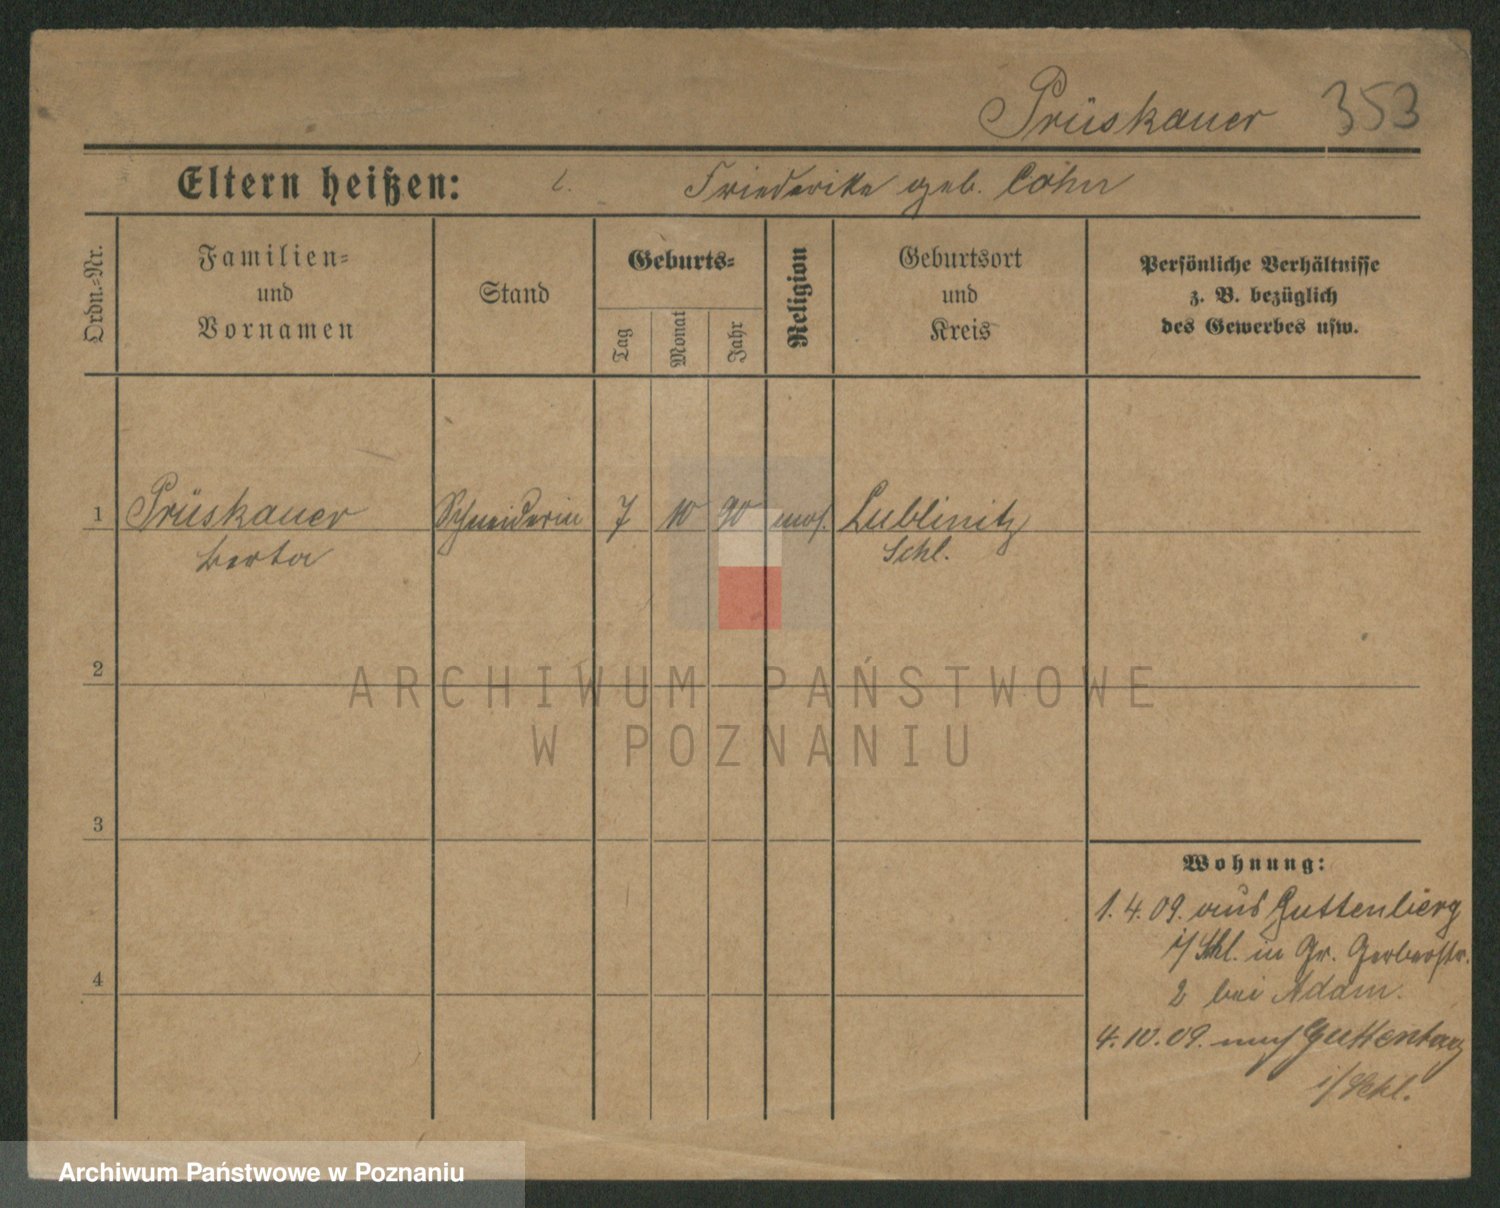 Prüskauer 353
Eltern heißen: Friederike geb. Cohn
Ordn.-Nr.
Familien-
und
Vornamen
Stand
Geburts-
Tag
Monat
Jahr
Religion
Geburtsort
und
Kreis
Persönliche Verhältnisse
z. B. bezüglich
des Gewerbes usw.
1 Prüskauer Schneiderin 7 10 90 mos. Lublinitz
Berta Schl.
2
ARCHIWUM PAŃSTWOWE
W POZNANIU
3
Wohnung:
1.4.09. aus Guttenberg
i/Schl. in Gr. Gerberstr.
4
2 bei Adam.
4.10.09. nach Guttentag
i/Schl.
Archiwum Państwowe w Poznaniu